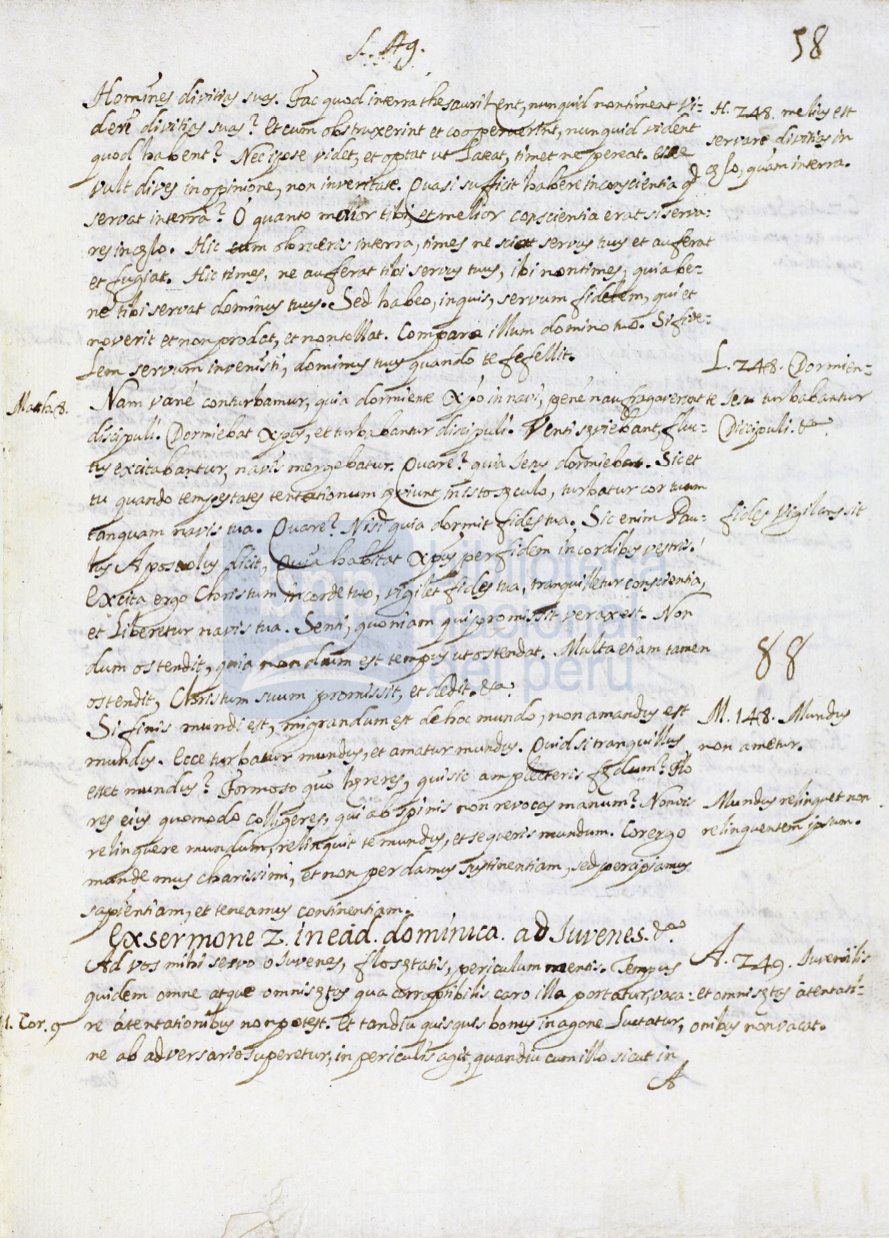 S. Ag.
58
Homines divitias suas. Fac quod in terra thesaurizent, nunquid non timent vi-
deri divitias suas? Et cum obstruxerint et cooperuerint, nunquid vident
quod habent? Nec ipse videt, et optat ut lateat, timet ne pereat.
vult dives in opinione, non in veritate. Quasi sufficit habere in conscientia qd
servat in terra? O quanto melior tibi, et melior conscientia erat si serva-
res in cęlo. Hic cum obrueris in terra, times ne sciat servus tuus et auferat
et fugiat. Hic times, ne auferat tibi servus tuus, ibi non times, quia be-
ne tibi servat dominus tuus. Sed habeo, inquis, servum fidelem, qui et
noverit et non prodat, et non tollat. Compara illum domino tuo. Si fide-
lem servum invenisti, dominus tuus quando te fefellit.
H. 248. melius est
servare divitias in
cęlo, quam in terra.
Matth. 8.
Nam vane conturbamur, quia dormiente Xpo in navi, pene naufragaverunt
discipuli. Dormiebat Xpus, et turbabantur discipuli. Venti sęviebant, fluc-
tus excitabantur, navis mergebatur. Quare? quia Iesus dormiebat. Sic et
tu quando tempestates tentationum sęviunt in isto sęculo, turbatur cor tuum
tanquam navis tua. Quare? Nisi quia dormit fides tua. Sic enim Pau-
lus Apostolus dicit, Quia habitat Xpus per fidem in cordibus vestris.
Excita ergo Christum in corde tuo, vigilet fides tua, tranquilletur conscientia,
et liberetur navis tua. Senti, quoniam qui promissit verax est. Non
dum ostendit, quia nondum est tempus ut ostendat. Multa etiam tamen
ostendit, Christum suum promissit, et dedit. &a
L. 248. Dormien-
te Iesu turbabantur
Discipuli. &
fides vigilans sit
88
Si finis mundi est, migrandum est de hoc mundo, non amandus est
mundus. Ecce turbatur mundus, et amatur mundus. Quid si tranquillus
esset mundus? Formoso quo hęreres, qui sic amplecteris fędum? Flo
res eius quomodo colligeres, qui ab spinis non revocas manum? Non vis
relinquere mundum, relinquit te mundus, et sequeris mundum. Cor ergo
mande mus charissimi, et non perdamus sustinentiam, sed percipiamus
sapientiam, et teneamus continentiam.
M. 148. Mundus
non ametur.
Mundus relinquet non
relinquentem ipsum.
Ex sermone 2. in ead. dominica. ad Iuvenes. &a
Ad vos mihi sermo o Iuvenes, flos ętatis, periculum mentis. Tempus
quidem omne atque omnis ętas qua corrupibilis caro illa portatur, vaca-
re à tentationibus non potest. Et tandiu quisquis bonus in agone luctatur,
ne ab adversario superetur, in periculis agit, quandiu cum illo sicut in
A. 249. Iuvenilis
et omnis ętas à tentati-
onibus non vacat.
1. Cor. 9
A
biblioteca
nacional
del perú
bnp